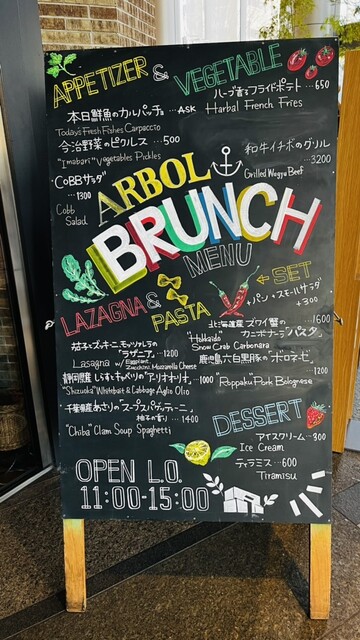 APPETIZER & VEGETABLE
本日鮮魚のカルパッチョ…ASK
Today's Fresh Fishes Carpaccio
今治野菜のピクルス…500
"Imabari" Vegetables Pickles
COBBサラダ
…1300
Cobb
Salad
ハーブ香るフライドポテト…650
Harbal French Fries
和牛イチボのグリル
…3200
Grilled Wagyu Beef
ARBOL
BRUNCH
MENU
← SET
パン+スモールサラダ
+300
LAZAGNA &
PASTA
茄子とズッキーニ、モッツァレラの
"ラザニア"…1200
Lasagna w/ Eggplant,
Zucchini, Mozzarella Cheese
静岡県産 しらすとキャベツの"アーリオ・オーリオ"…1000
"Shizuoka" Whitebait & Cabbage Aglio Olio
千葉県産あさりの"スープスパゲッティーニ"
柚子の香り…1400
"Chiba" Clam Soup Spaghetti
1600
北海道産 ズワイ蟹の
"カニボナーラパスタ"
"Hokkaido"
Snow Crab Carbonara
鹿児島六白黒豚の"ボロネーゼ"
1200
Roppaku Pork Bolognese
DESSERT
アイスクリーム…300
Ice Cream
ティラミス…600
Tiramisu
OPEN L.O.
11:00-15:00